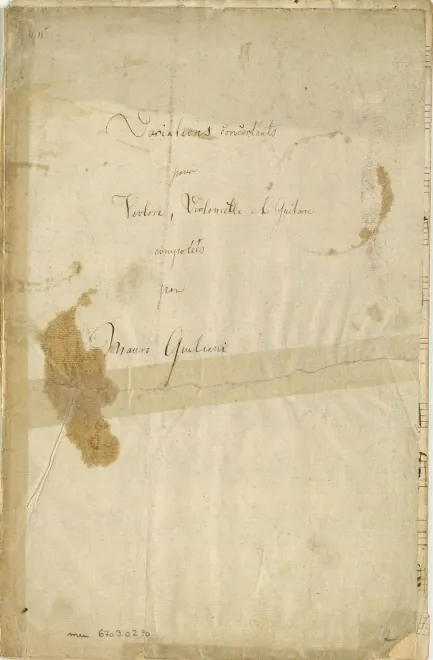 Variations concertants
pour
Violon, Violoncelle et Guitare
composées
par
Mauro Giuliani
mu 6703.0230